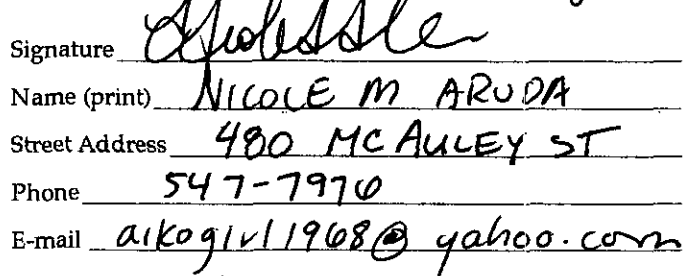 Signature
Name (print) NICOLE M ARUDA
Street Address 480 MCAULEY ST
Phone 547-7976
E-mail aikogirl1968@yahoo.com